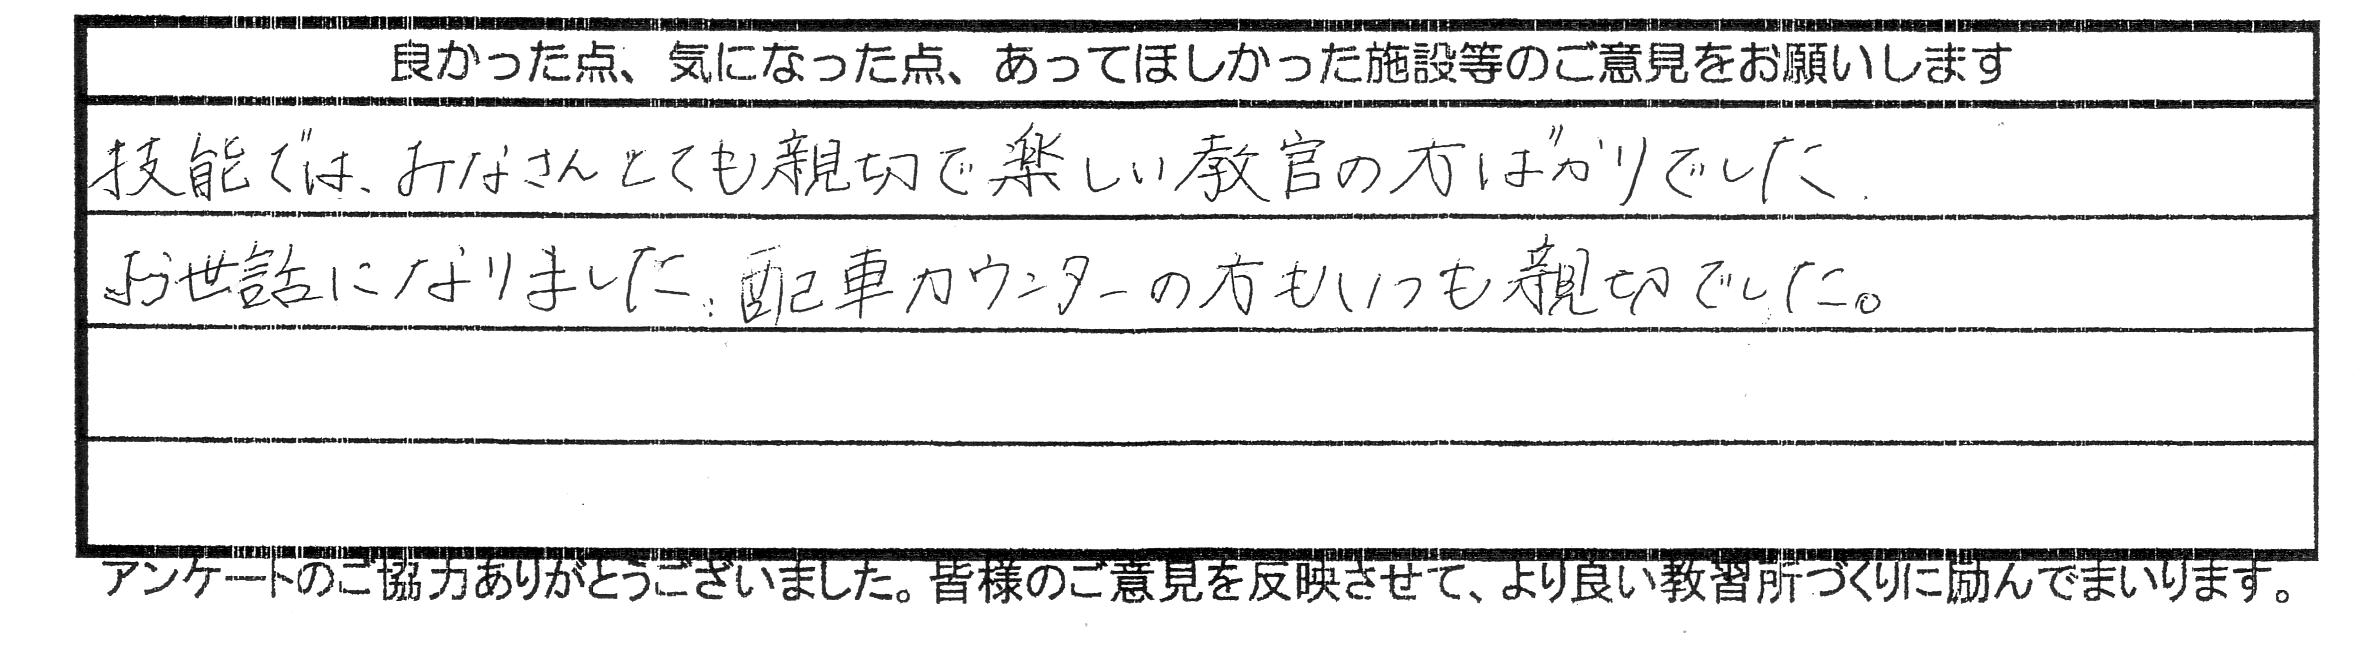 良かった点、気になった点、あってほしかった施設等のご意見をお願いします
技能では、みなさんとても親切で楽しい教官の方ばかりでした.
お世話になりました. 配車カウンターの方もいつも親切でした。
アンケートのご協力ありがとうございました。皆様のご意見を反映させて、より良い教習所づくりに励んでまいります。